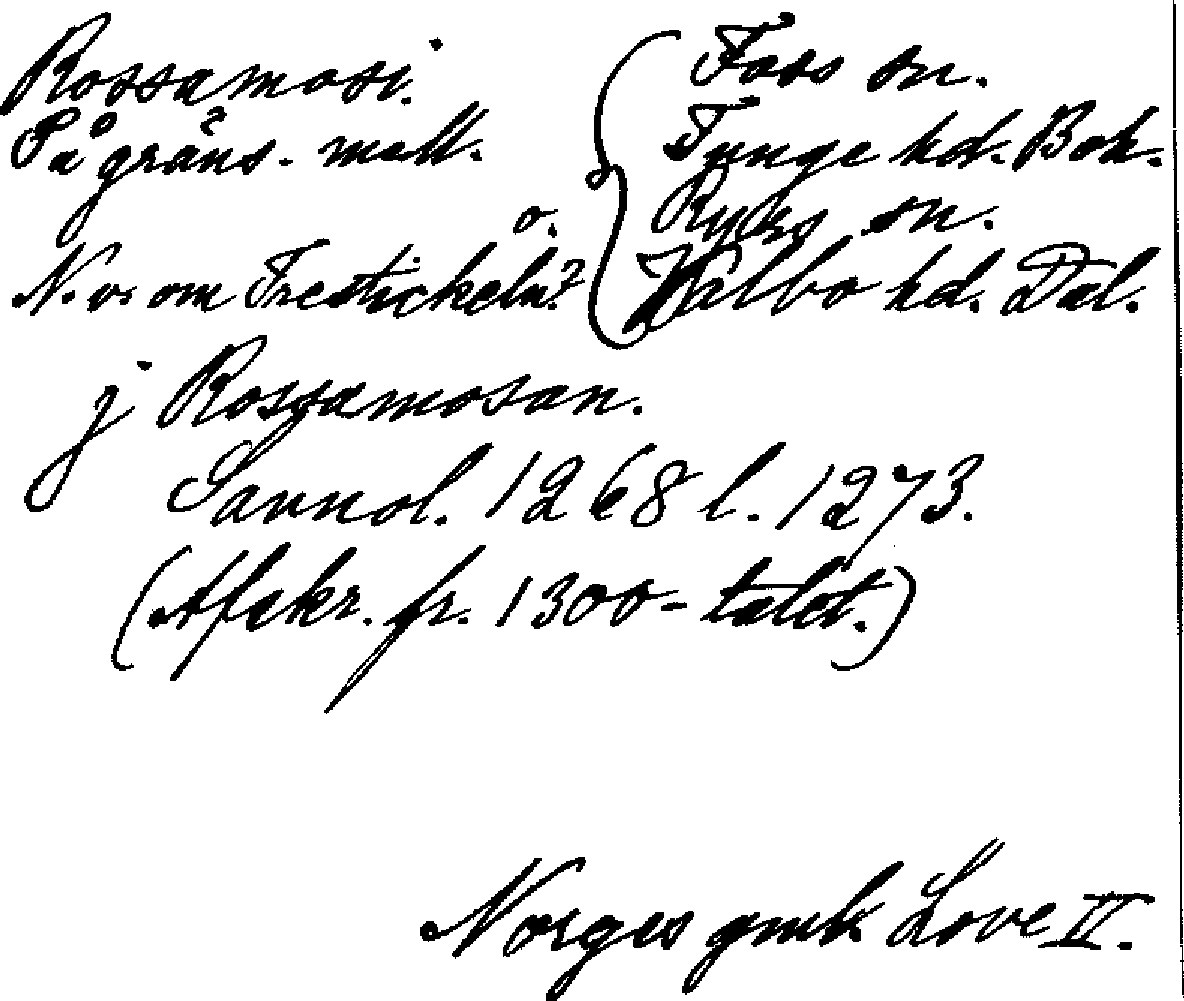 Rossamosi. Foss sn.
På gräns. mell. Tunge hd. Boh.
o. Ryrs sn.
N. v. om Trestickeln? Valbo hd. Dal.
j Rossamosan.
Savnol. 1268 l. 1273.
(Afskr. fr. 1300-talet.)
Norges gmle Love II.